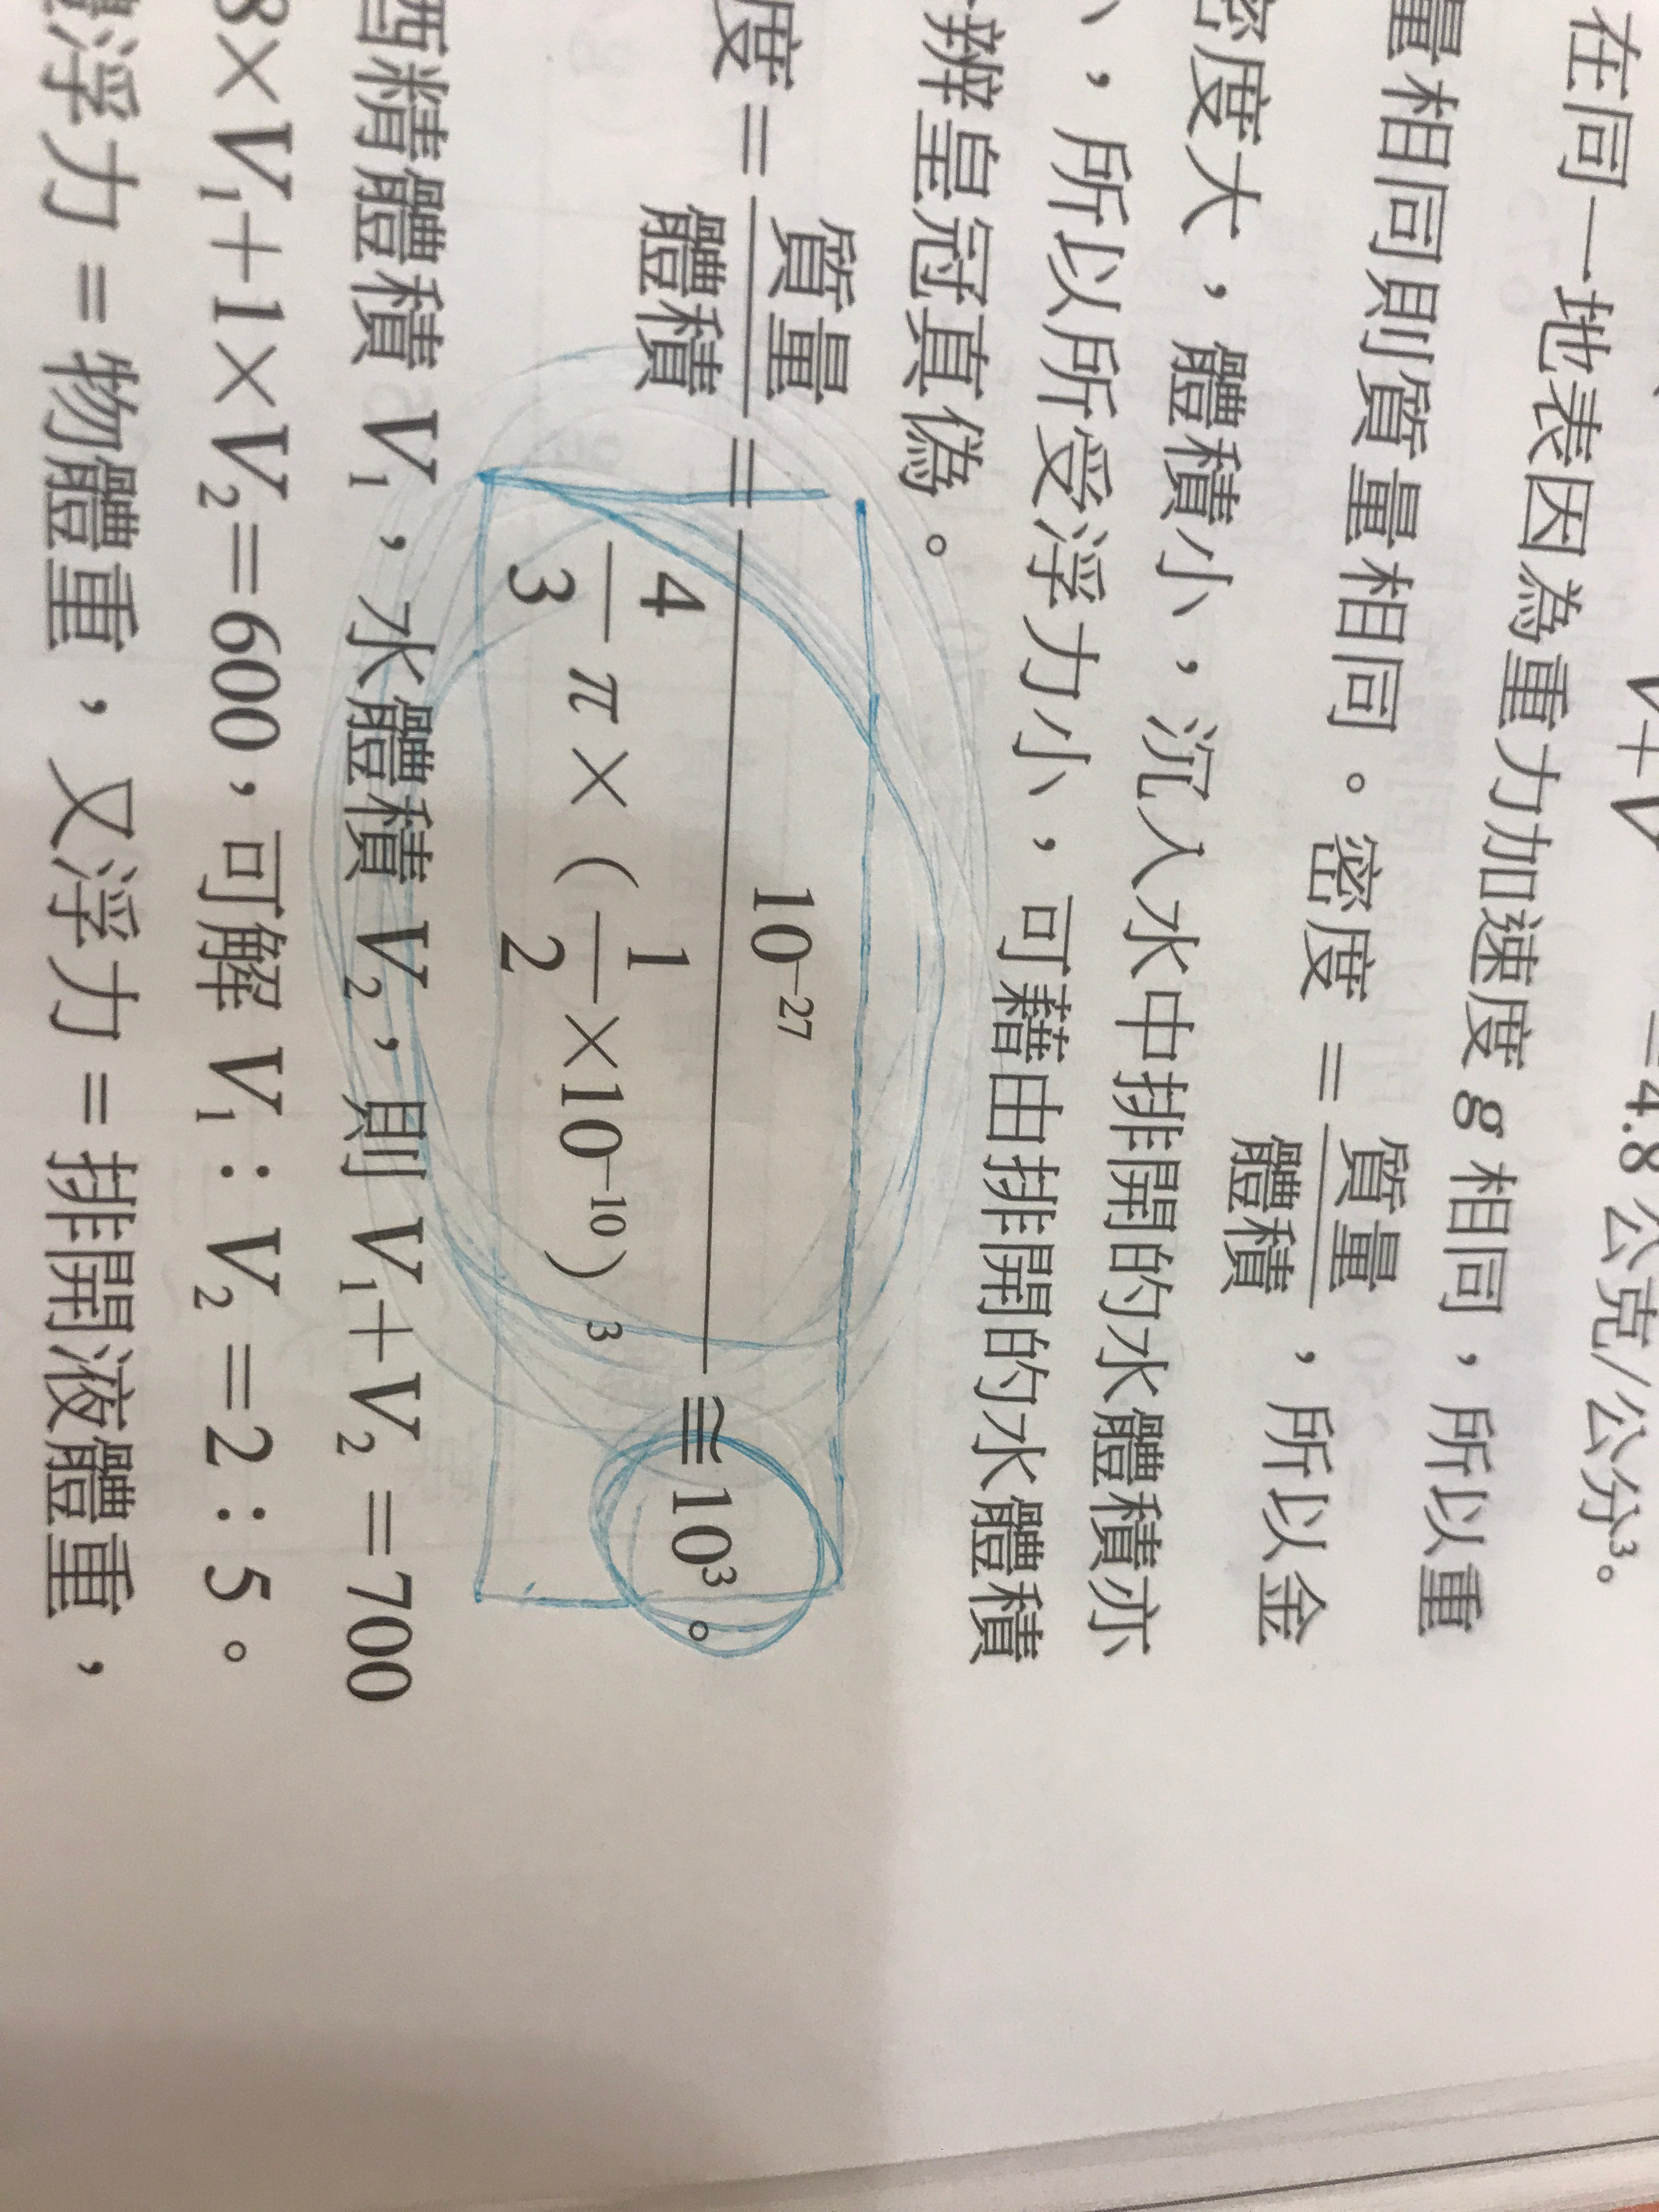 =4.8公克/公分³。
在同一地表因為重力加速度 g 相同，所以重
量相同則質量相同。密度 = 質量/體積，所以金
密度大，體積小，沉入水中排開的水體積亦
，所以所受浮力小，可藉由排開的水體積
辨皇冠真偽。
度 = 質量/體積 = 10⁻²⁷/(4/3 π × (1/2 ×10⁻¹⁰)³) ≅ 10³。
酒精體積 V₁，水體積 V₂，則 V₁+V₂ =700
8×V₁+1×V₂=600，可解 V₁：V₂ =2：5。
浮力 = 物體重，又浮力 = 排開液體重，